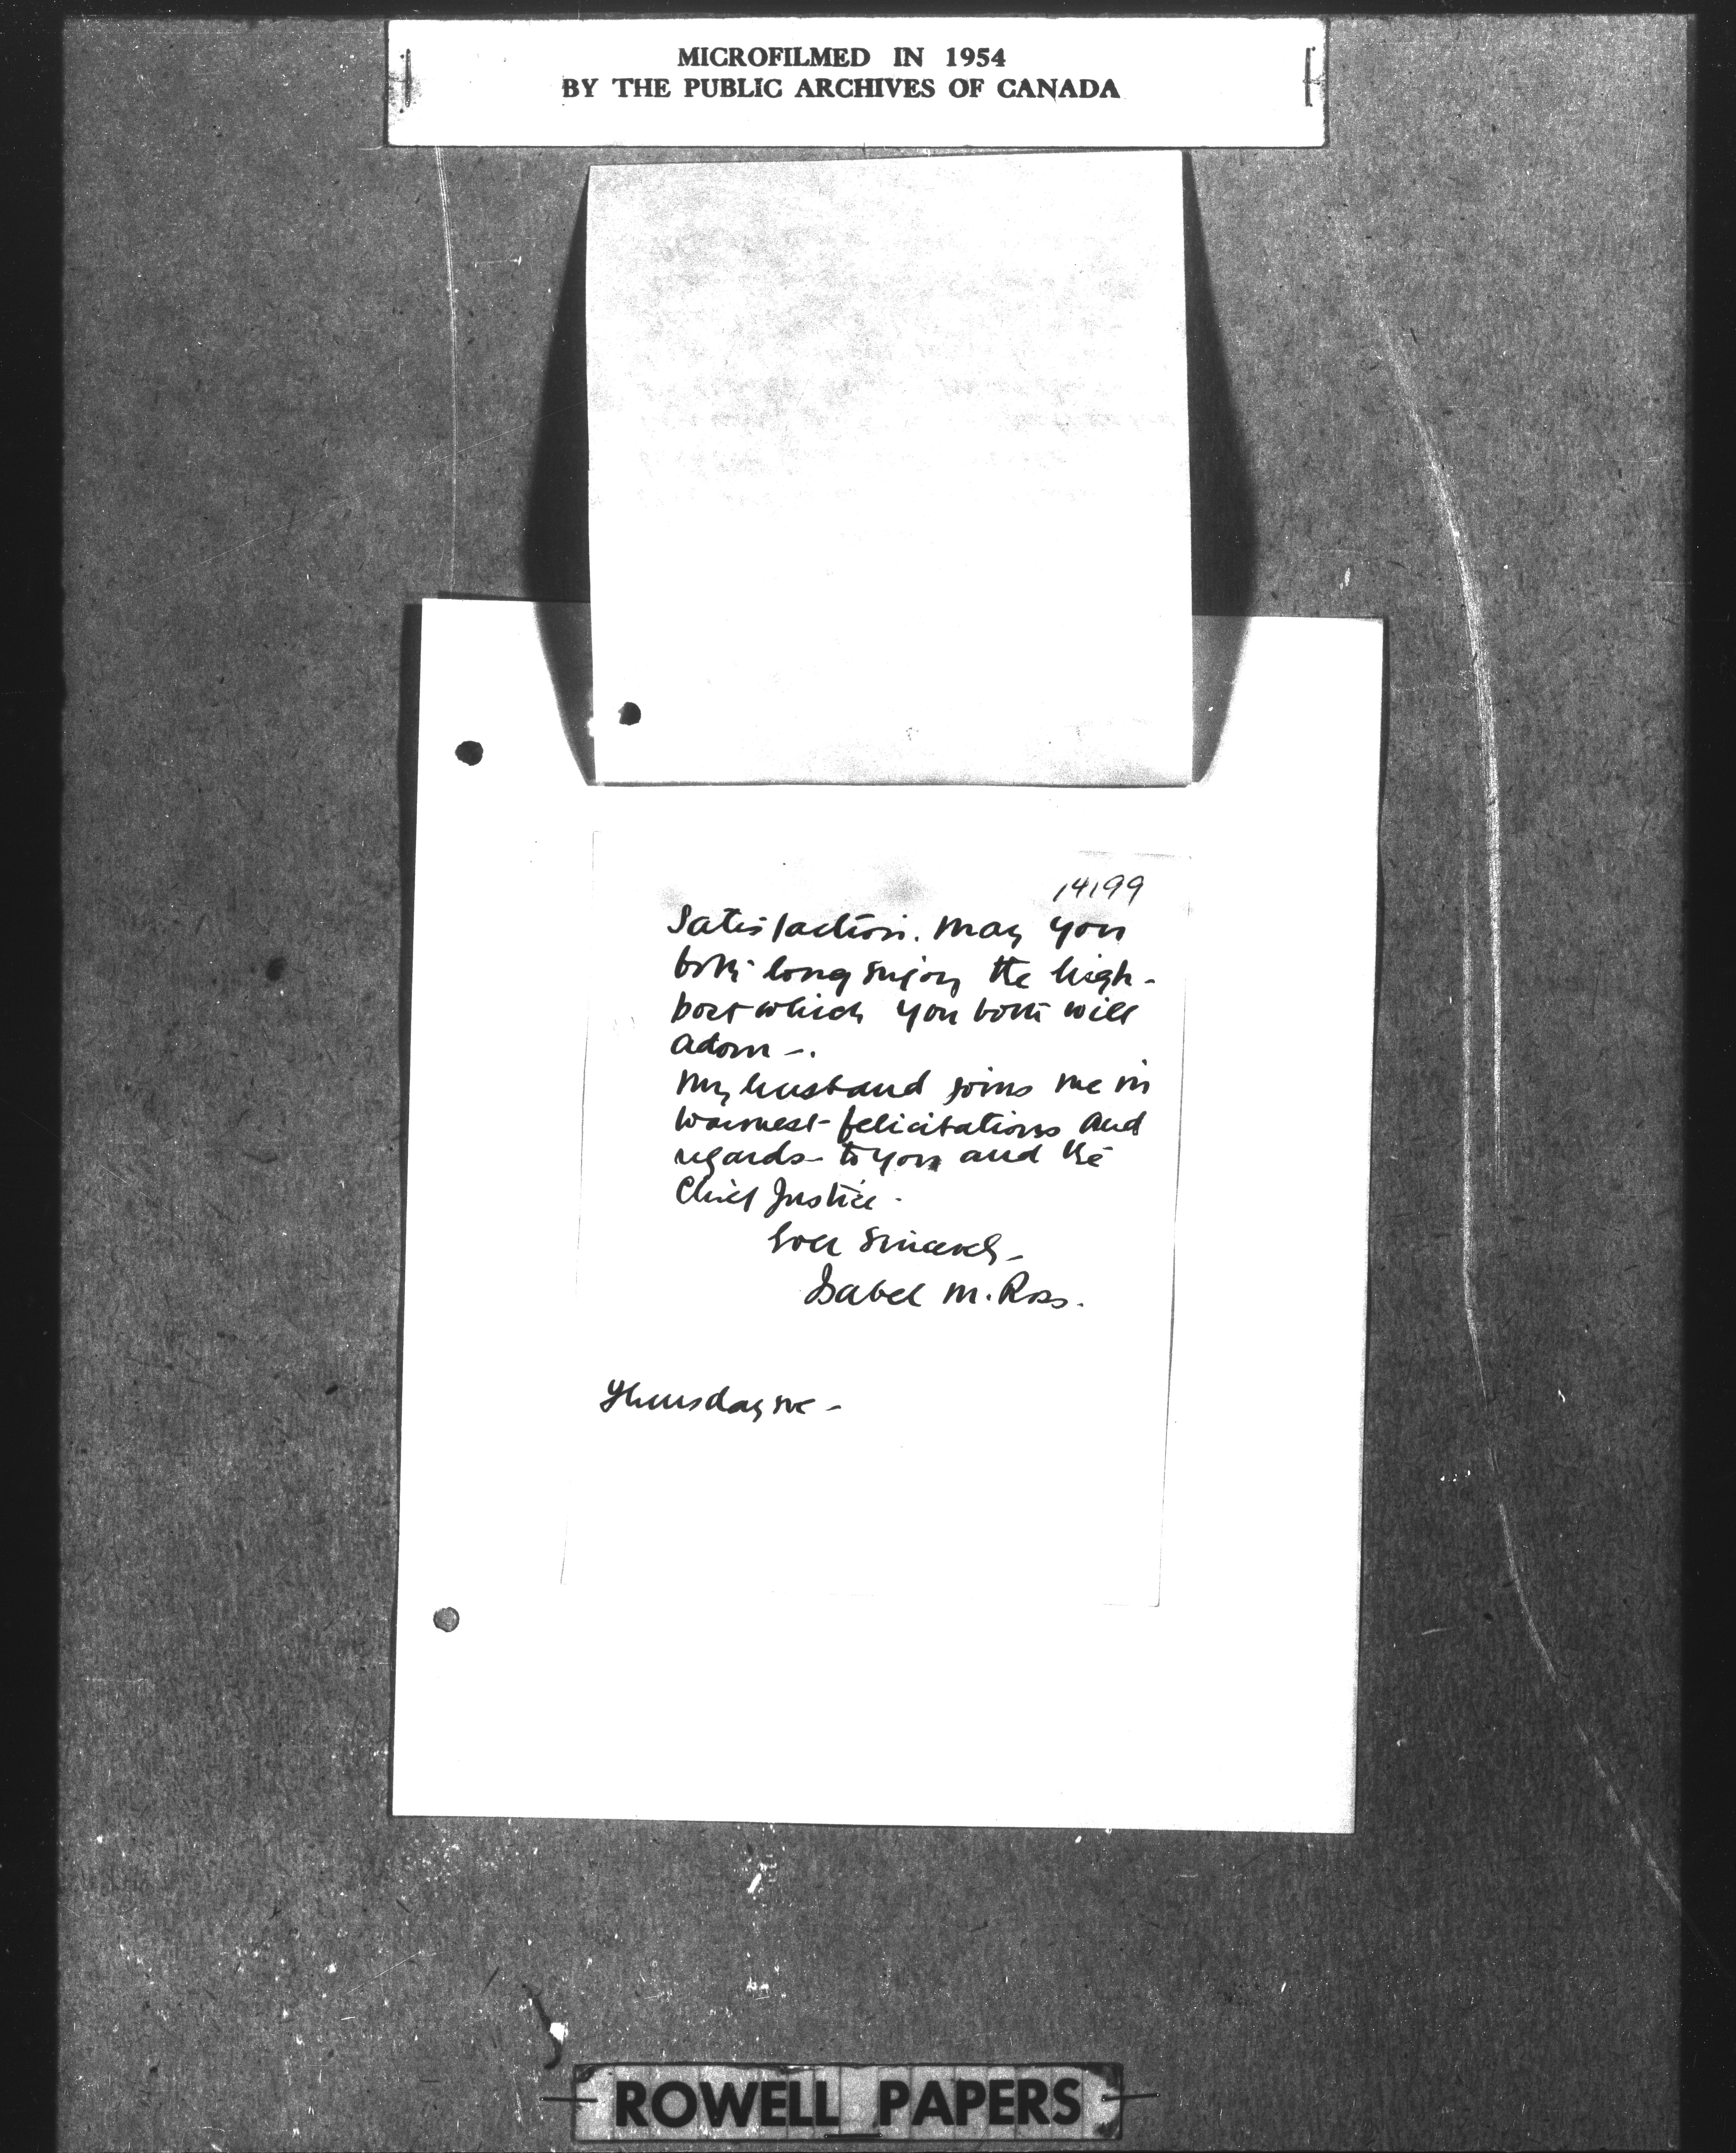 MICROFILMED IN 1954
BY THE PUBLIC ARCHIVES OF CANADA
14199
Satisfaction. May you
both long enjoy the high-
post which you both will
adorn -.
My husband joins me in
warmest felicitations and
regards - to you and the
Chief Justice -
Ever Sincerely -
Isabel M. Ross.
Thursday eve -
ROWELL PAPERS